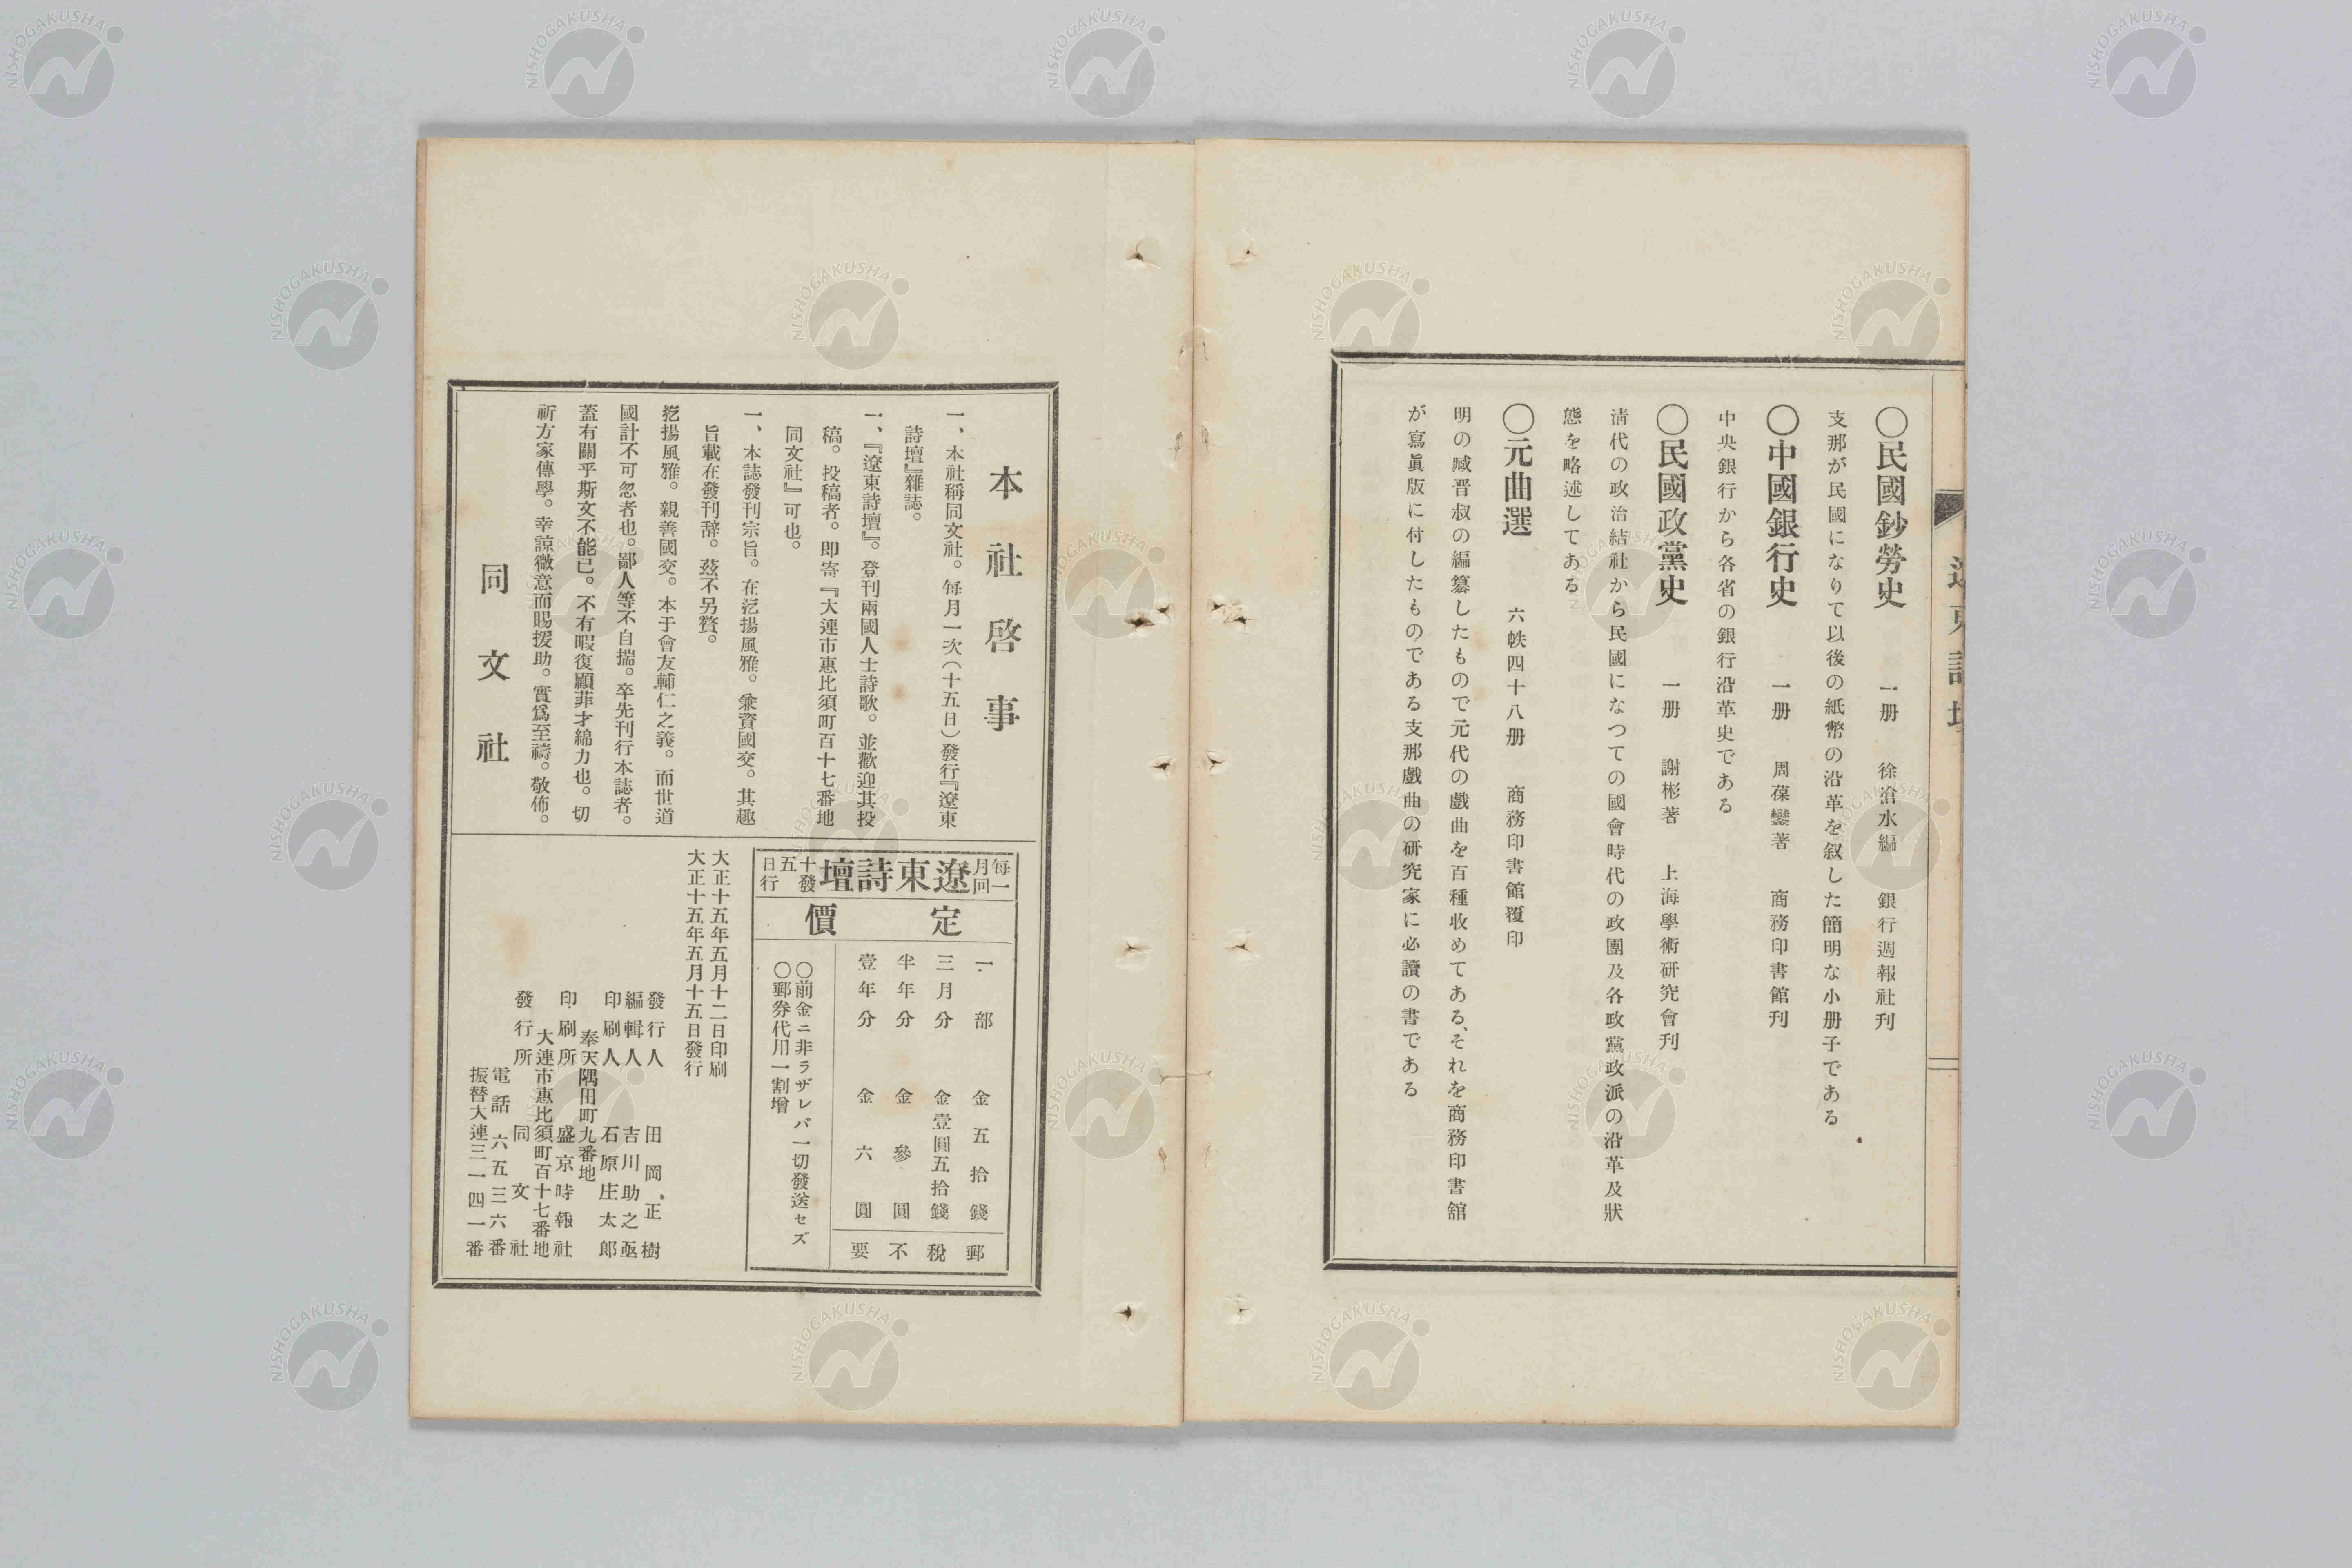 遼東詩壇
○民國鈔勞史　一册　徐滄水編　銀行週報社刊
支那が民國になりて以後の紙幣の沿革を叙した簡明な小册子である
○中國銀行史　一册　周葆鑾著　商務印書館刊
中央銀行から各省の銀行沿革史である
○民國政黨史　一册　謝彬著　上海學術研究會刊
淸代の政治結社から民國になつての國會時代の政團及各政黨政派の沿革及狀
態を略述してある
○元曲選　六帙四十八册　商務印書館覆印
明の臧晋叔の編纂したもので元代の戲曲を百種收めてある、それを商務印書舘
が寫眞版に付したものである支那戲曲の研究家に必讀の書である
本社啓事
一、本社稱同文社。每月一次（十五日）發行『遼東
詩壇』雜誌。
一、『遼東詩壇』。登刊兩國人士詩歌。並歡迎其投
稿。投稿者。即寄『大連市惠比須町百十七番地
同文社』可也。
一、本誌發刊宗旨。在挖揚風雅。兼資國交。其趣
旨載在發刊辞。玆不另贅。
挖揚風雅。親善國交。本于會友輔仁之義。而世道
國計不可忽者也。鄙人等不自揣。卒先刊行本誌者。
蓋有關乎斯文不能已。不有暇復顧菲才綿力也。切
祈方家傳學。幸諒微意而賜援助。實爲至禱。敬佈。
同文社
每月一回
遼東詩壇
十五日發行
定價
一部　金五拾錢
三月分　金壹圓五拾錢
半年分　金參圓
壹年分　金六圓
郵稅不要
○前金ニ非ラザレバ一切發送セズ
○郵券代用一割增
大正十五年五月十二日印刷
大正十五年五月十五日發行
發行人　田岡正樹
編輯人　吉川助之亟
印刷人　石原庄太郎
奉天隅田町九番地
印刷所　盛京時報社
大連市惠比須町百十七番地
發行所　同文社
電話六五三六番
振替大連三一四一番
NISHOGAKUSHA